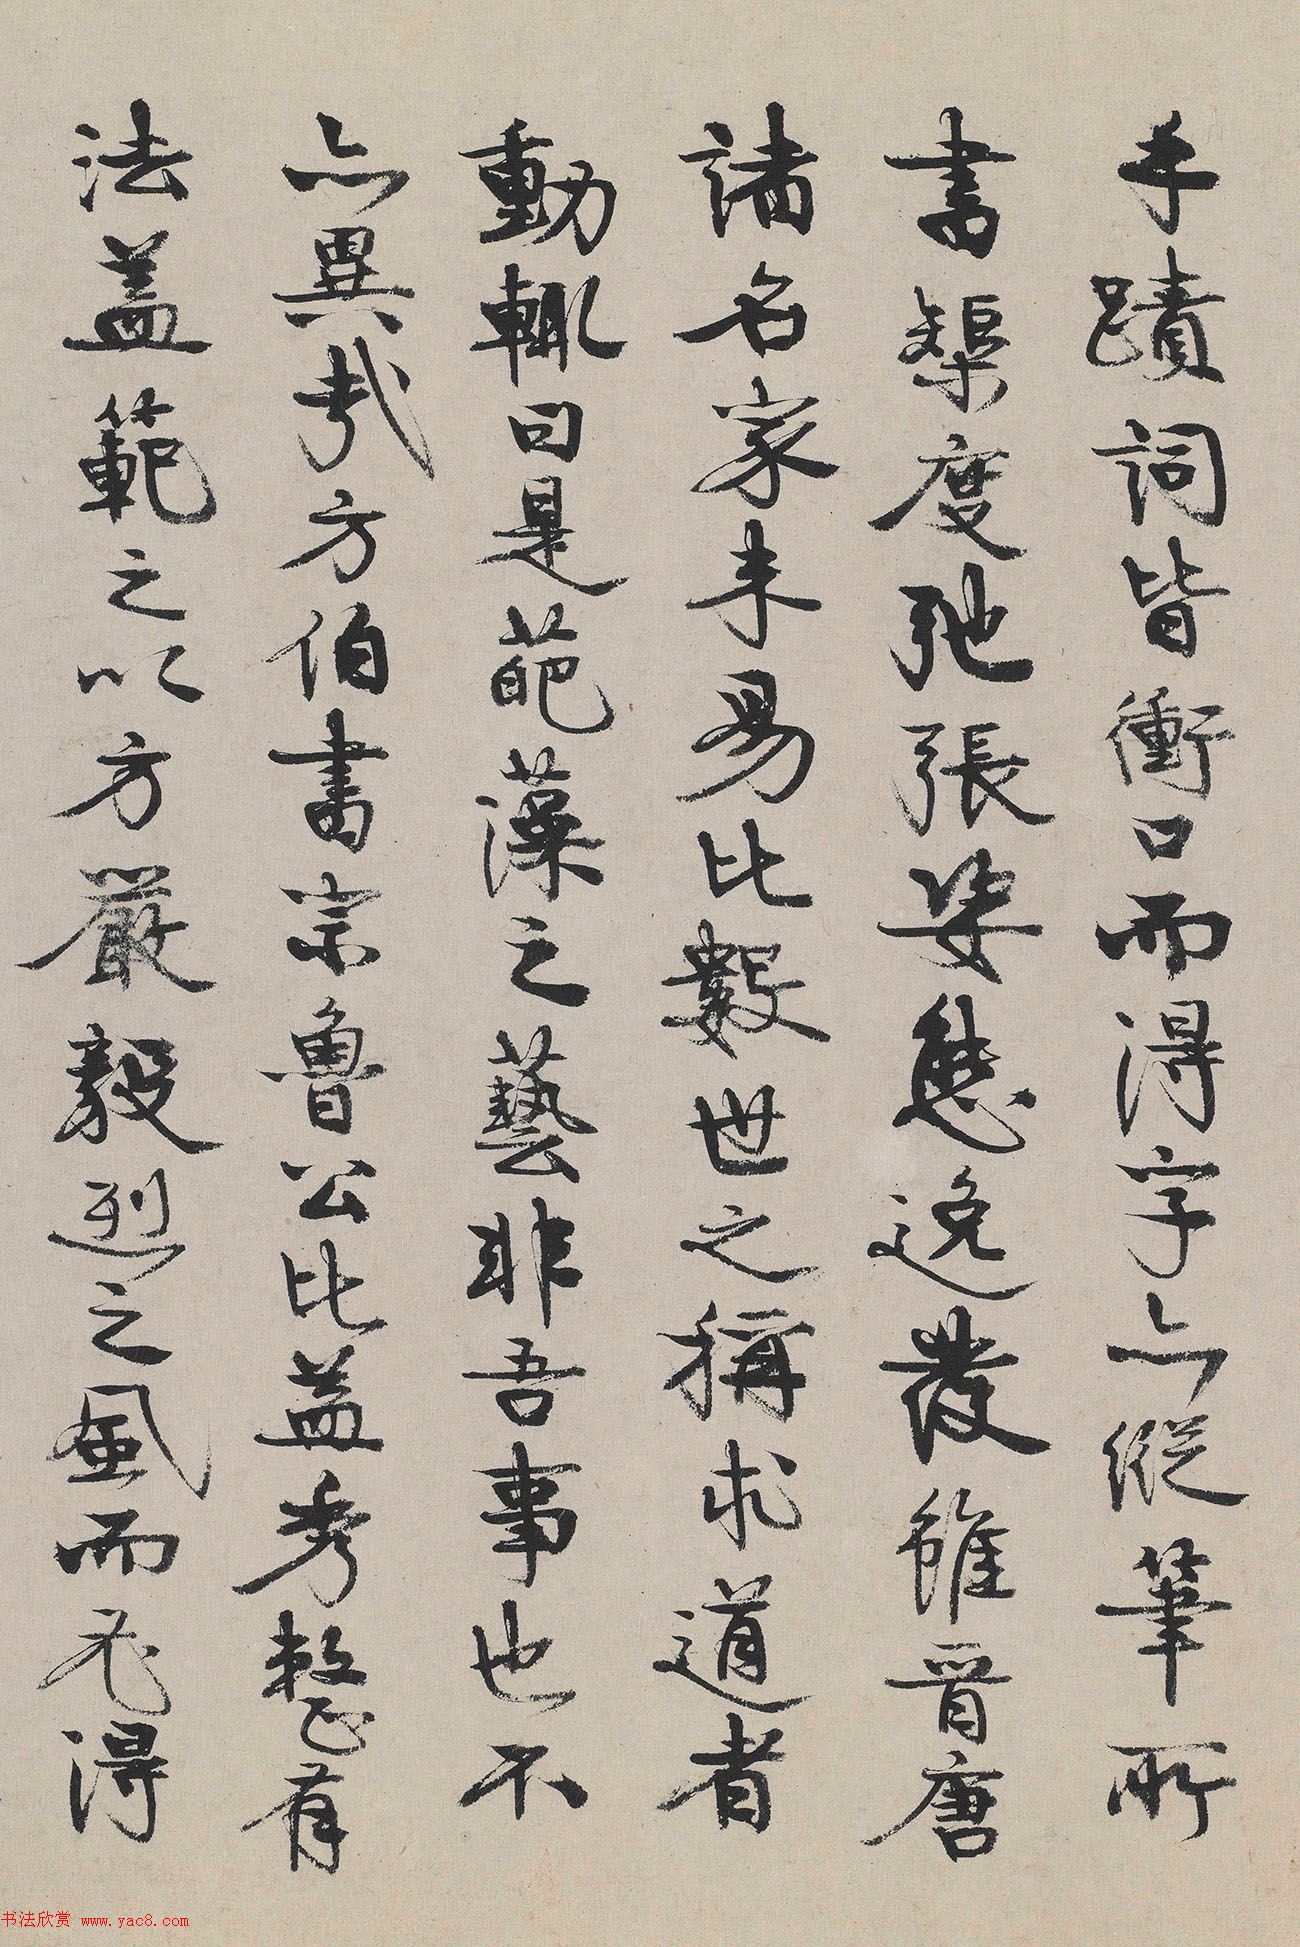 手蹟詞皆衝口而得字亦縱筆所
書榘度弛張姿態逸發雖晉唐
諸名家未易比數世之稱求道者
動輙曰是葩藻之藝非吾事也不
亦異哉方伯書宗魯公比益秀整有
法盖範之以方嚴毅烈之風而尤得
书法欣赏 www.yac8.com